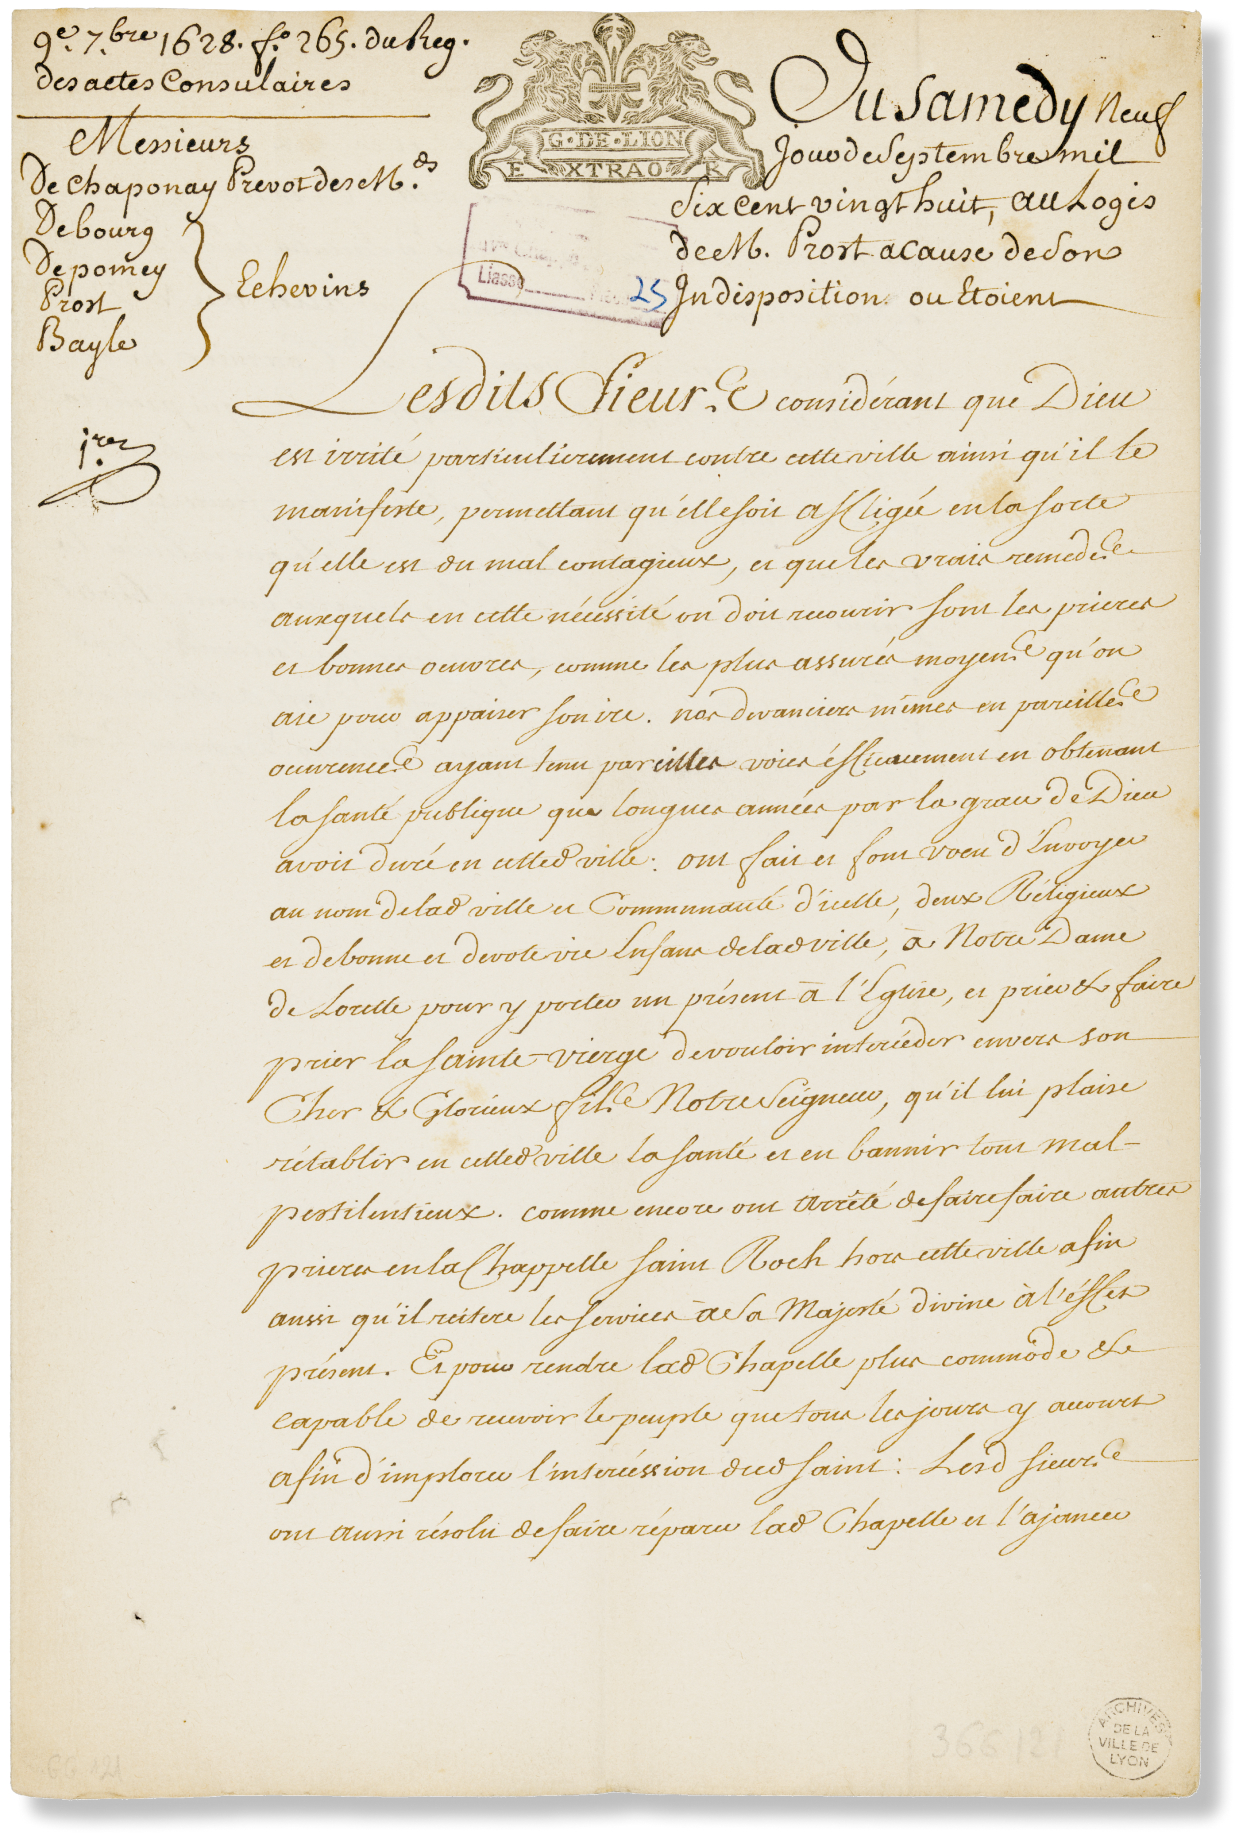 9e. 7.bre 1628. fo. 265. du Reg.
des actes Consulaires
Messieurs
De Chaponay Prevot des M.ds
De bourg
De pomey
Prost
Bayle
Echevins
G·DE·LION
EXTRAOR
Liasse
25
Du Samedy Neuf
Jour de Septembre mil
Six cent vingt huit, au Logis
de M. Prost a cause de Son
Indisposition. ou Etoient
1res
Lesdits Sieurs considérant que Dieu
est irrité particulierement contre cette ville ainsi qu'il le
manifeste, permettant qu'elle soit affligée en la sorte
qu'elle est du mal contagieux, et que les vrais remedes
auxquels en cette nécéssité on doit recourir sont les prieres
et bonnes oeuvres, comme les plus assurés moyens qu'on
aie pour appaiser son ire. nos devanciers mêmes en pareilles
ocurences ayant tenu pareilles voies éfficacement en obtenant
la santé publique que longues années par la grace de Dieu
avoit duré en cetted ville: ont fait et font voeu d'Envoyer
au nom de lad ville et Communauté d'icelle, deux Réligieux
et de bonne et devote vie Enfans de lad ville, à Notre Dame
de Lorette pour y porter un présent à l'Eglise, et prier & faire
prier la sainte vierge de vouloir intercéder envers son
Cher & Glorieux fils Notre Seigneur, qu'il lui plaise
rétablir en cetted ville la santé et en bannir tout mal
pestilentieux. comme encore ont arrêté de faire faire autres
prieres en la Chappelle saint Roch hors cette ville afin
aussi qu'il reitere les services à Sa Majesté divine à l'éffet
présent. Et pour rendre lad Chapelle plus commode &
capable de recevoir le peuple que tous les jours y accourt
afin d'implorer l'intercéssion dud saint: Lesd sieurs
ont aussi résolu de faire réparer lad Chapelle et l'ajancer
366 121
GG 121
ARCHIVES
DE LA
VILLE DE
LYON